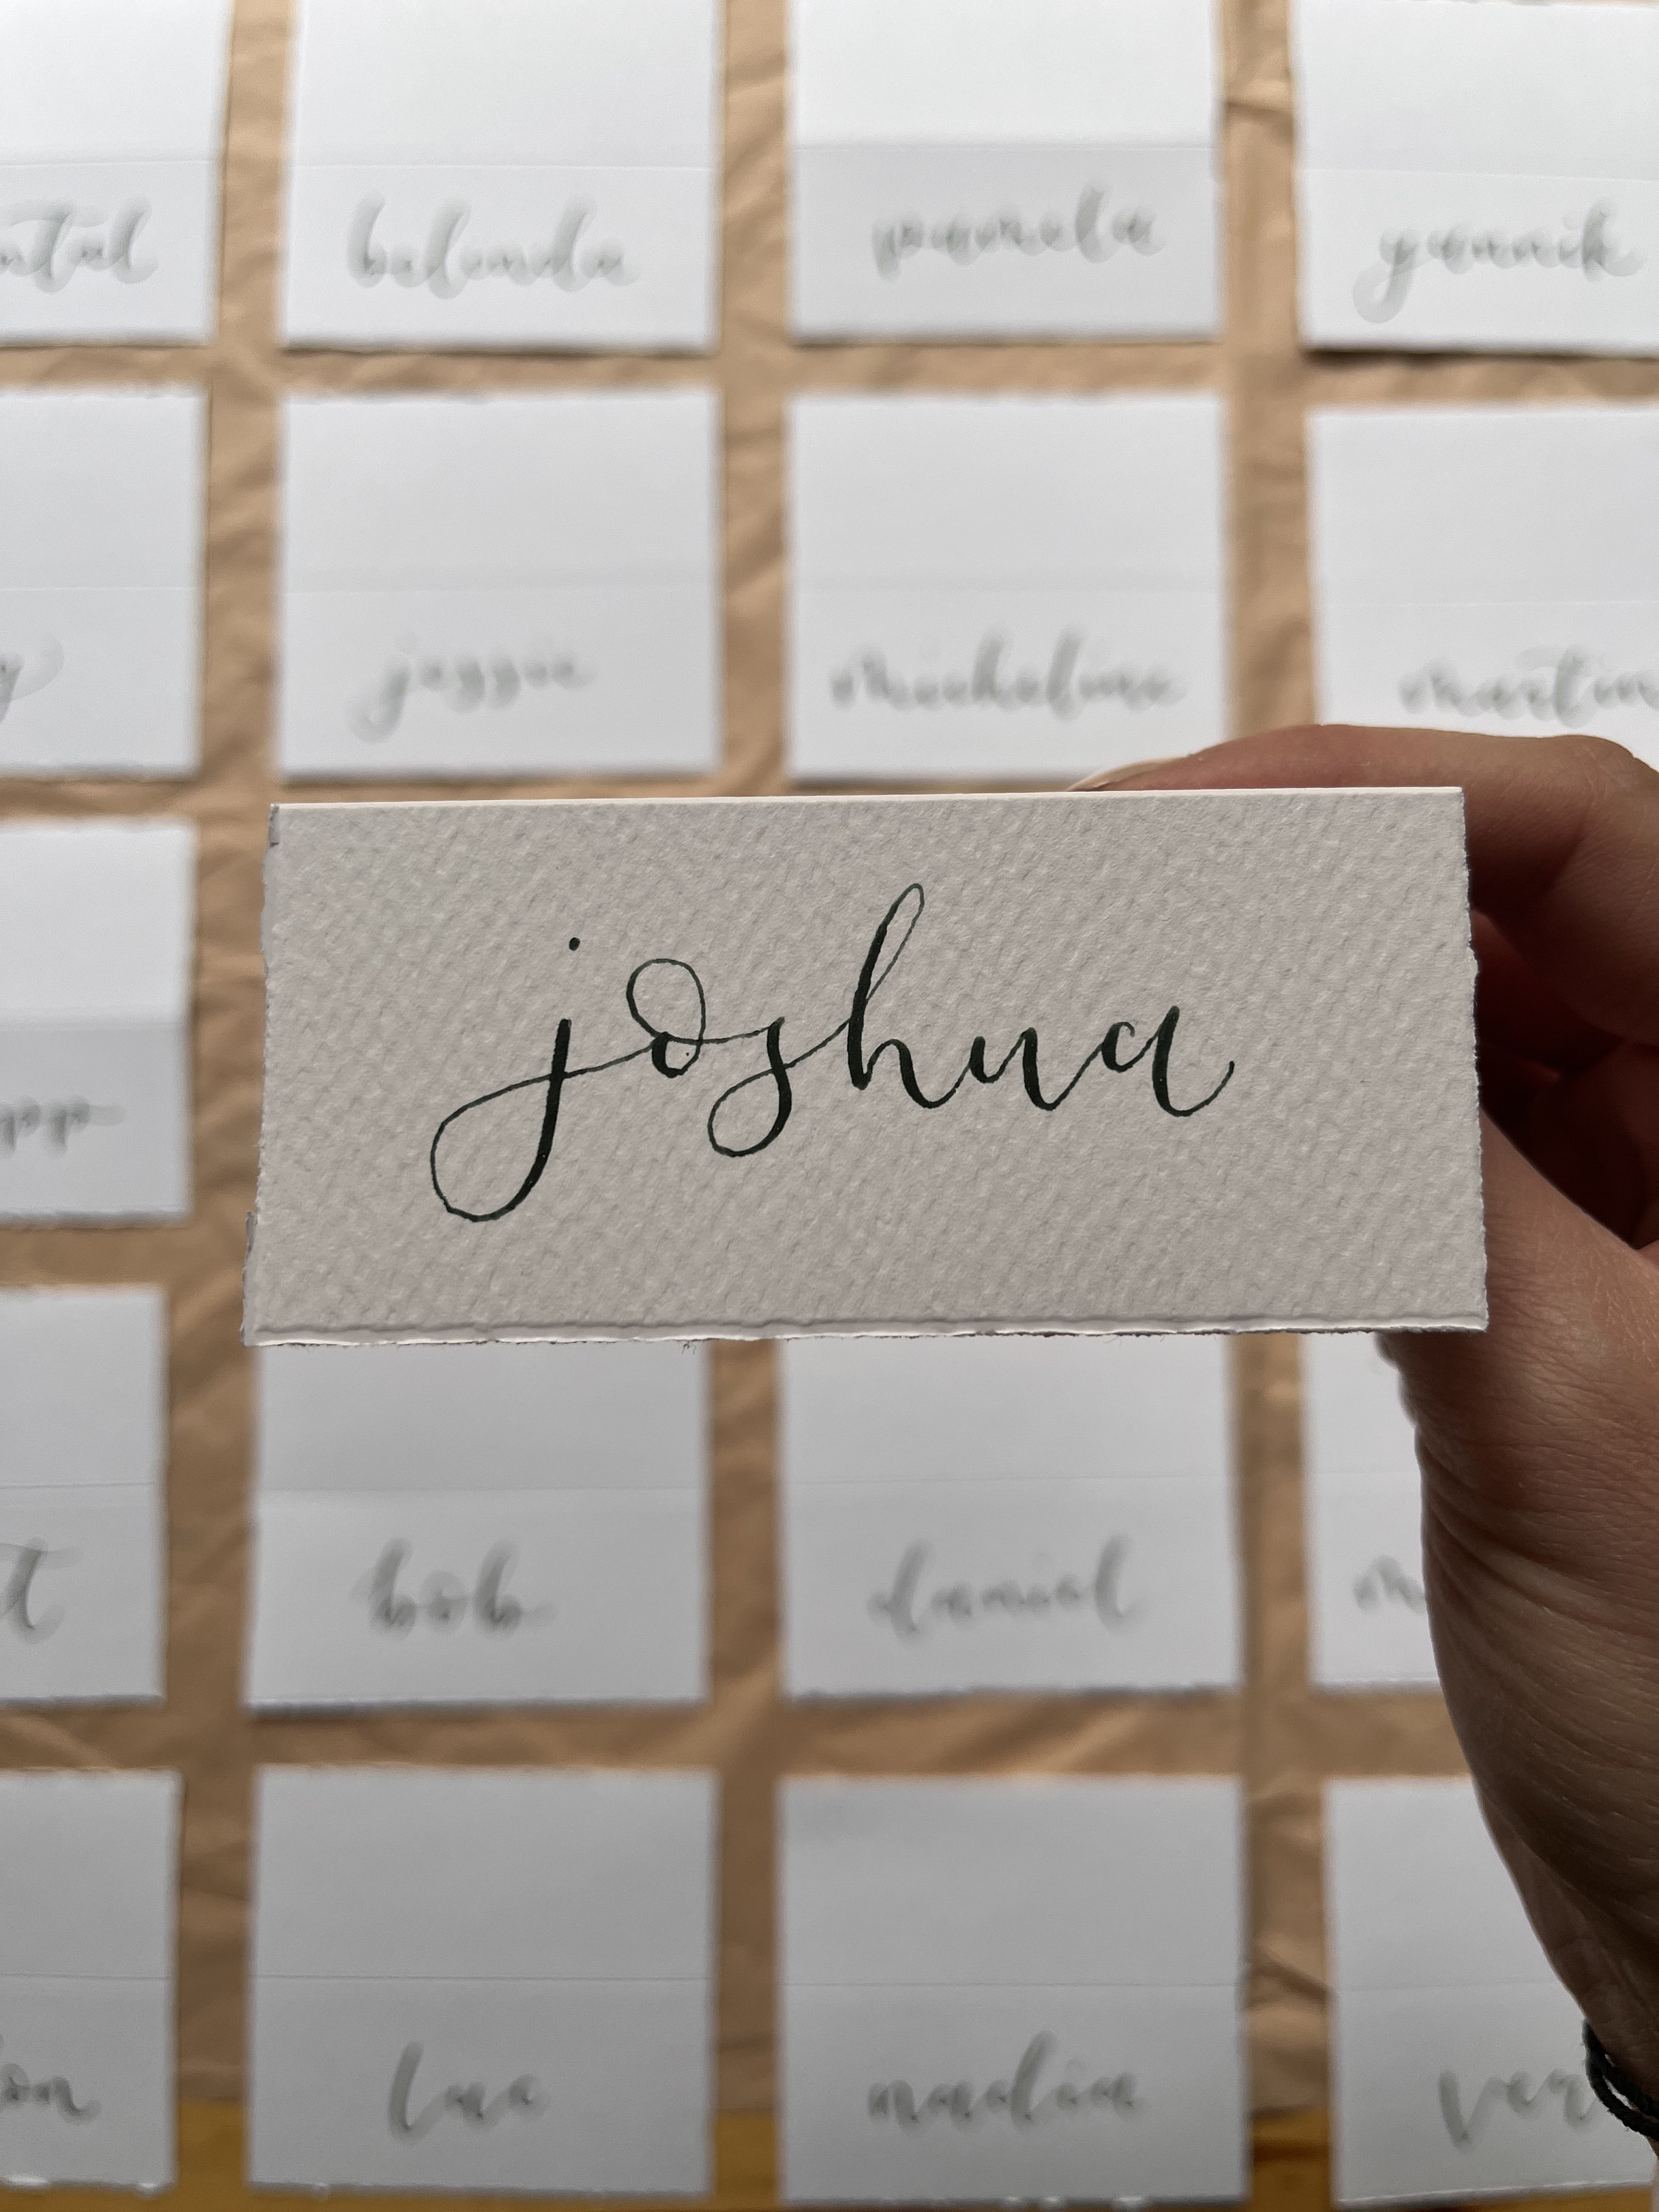 belinda
pamela
yannik
jessie
micheline
martin
joshua
bob
daniel
luc
nadia